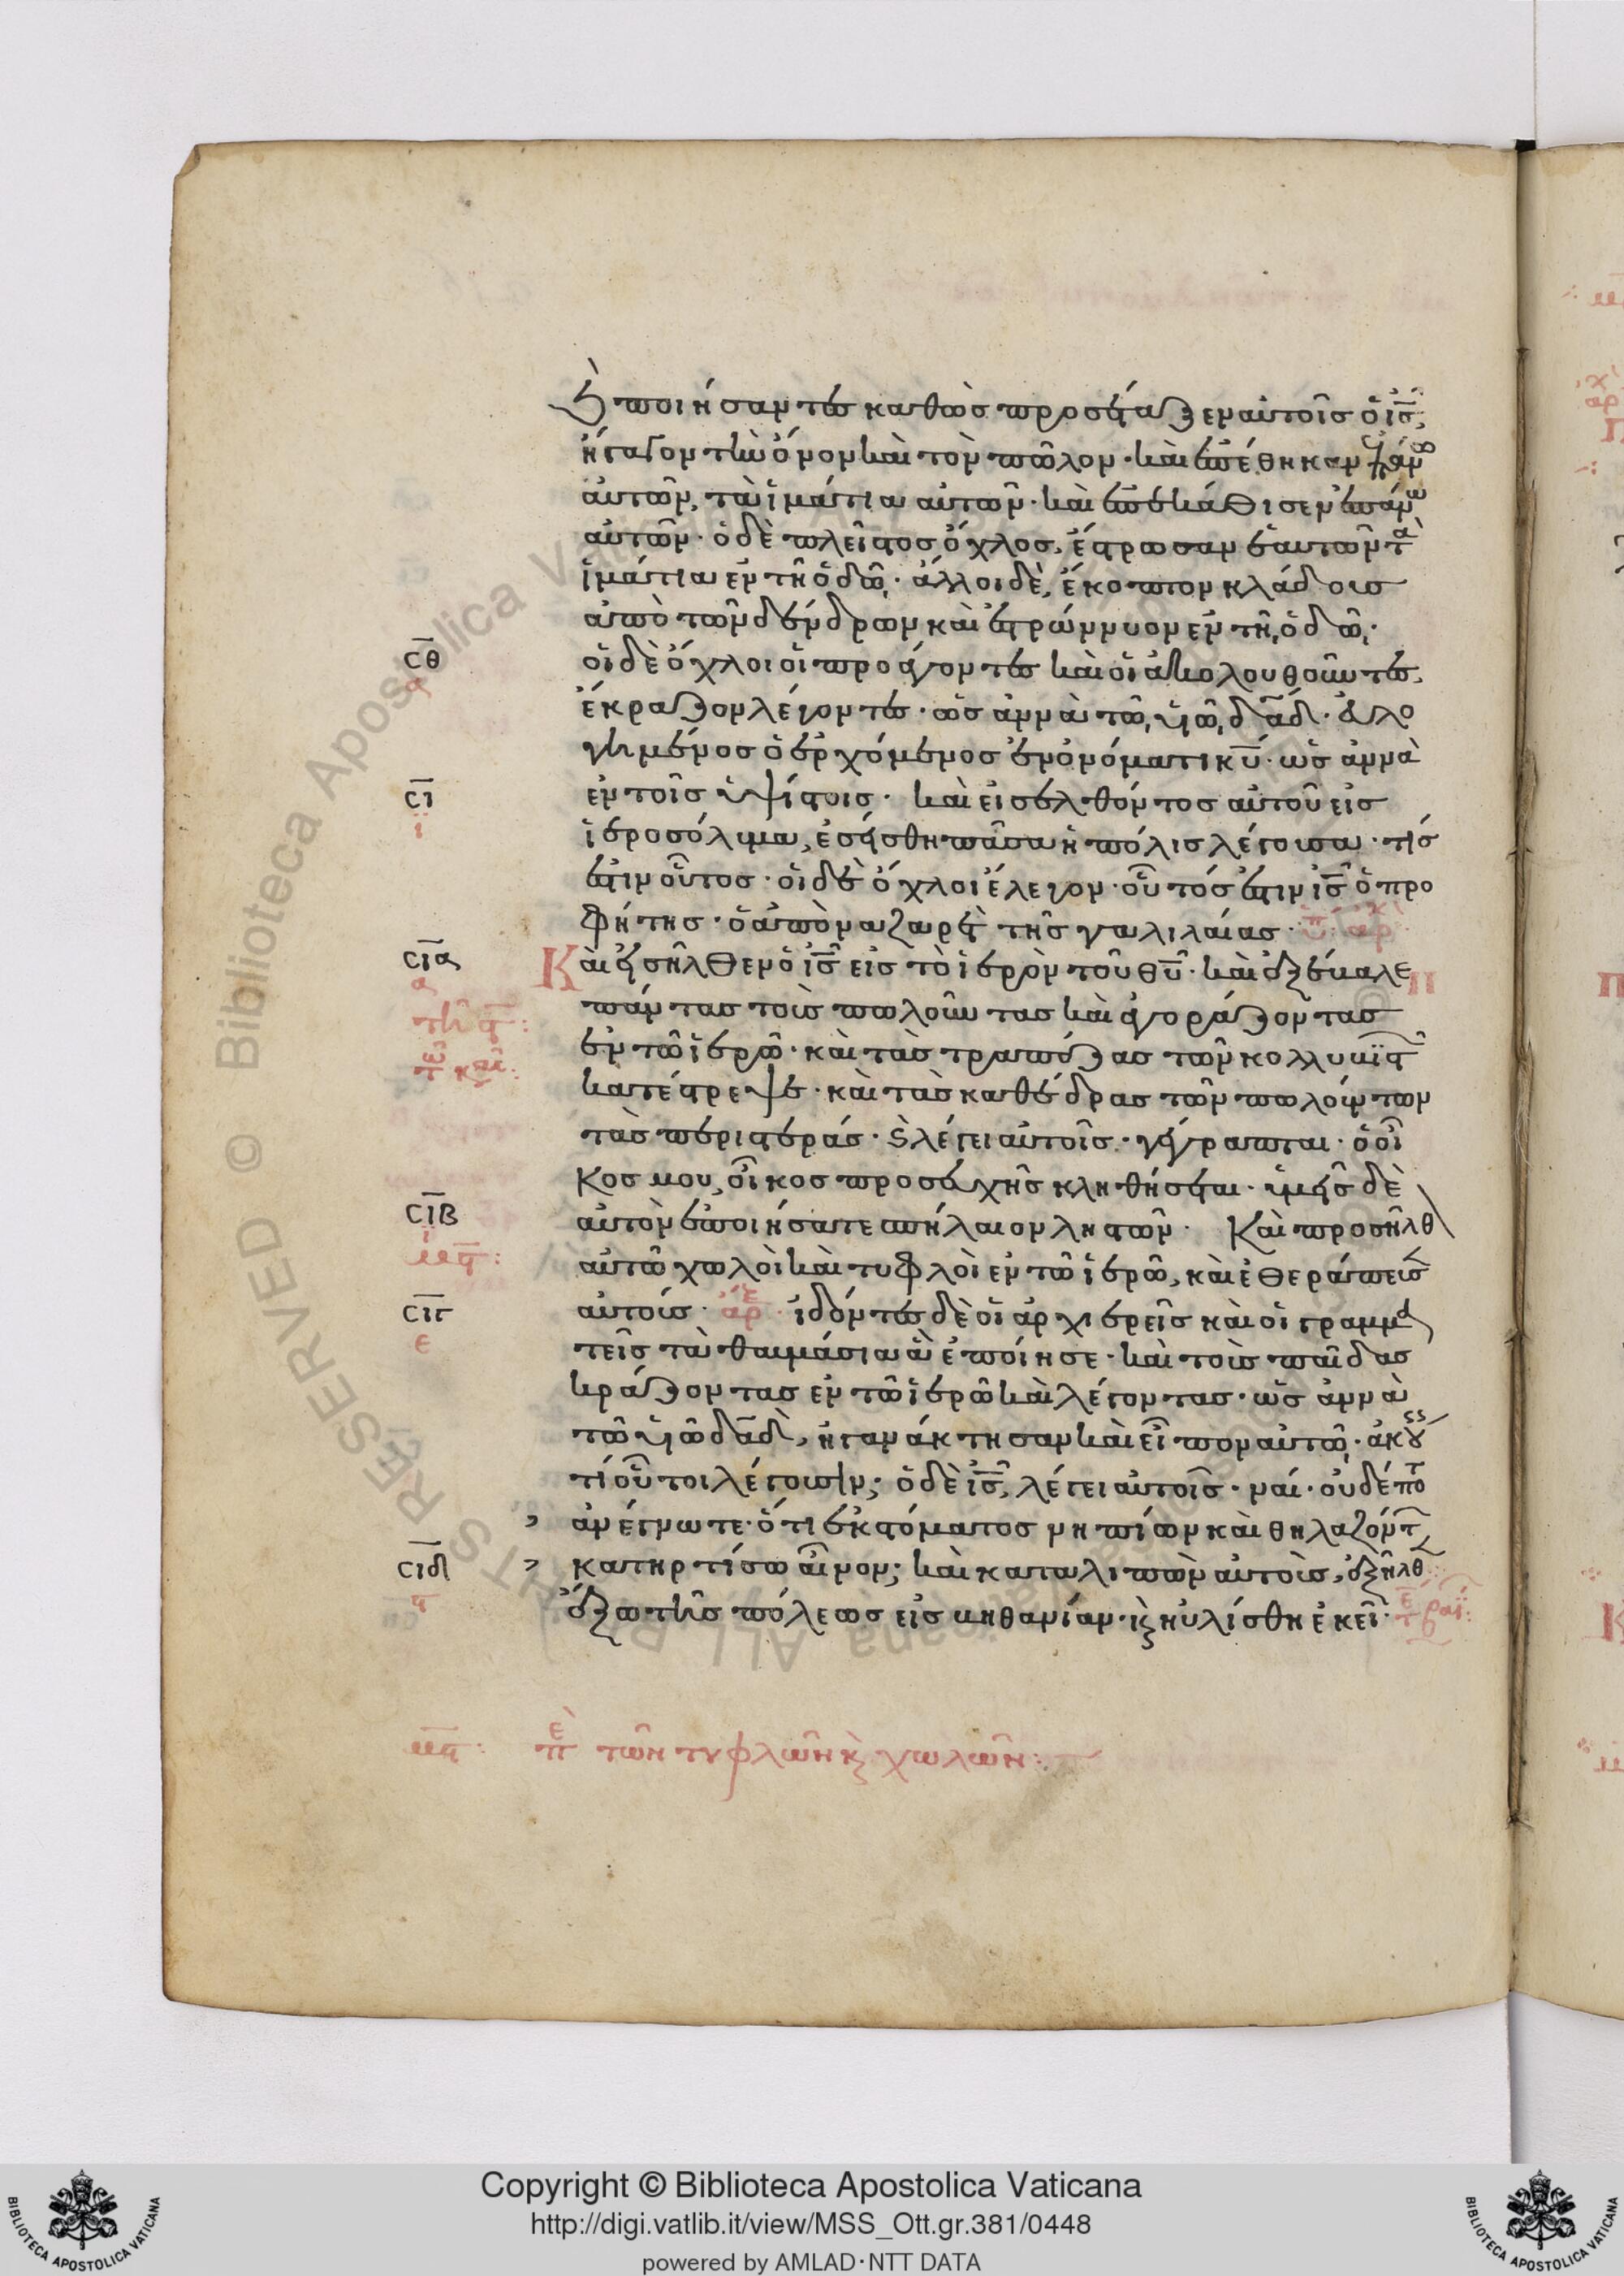 καὶ ποιήσαντες καθὼς προσέταξεν αὐτοῖς ὁ ις̅,
ἤγαγον τὴν ὄνον καὶ τὸν πῶλον· καὶ ἐπέθηκαν ἐπάνω
αὐτῶν, τὰ ἱμάτια αὐτῶν· καὶ ἐπεκάθισεν ἐπάνω
αὐτῶν· ὁ δὲ πλεῖστος ὄχλος, ἔστρωσαν ἑαυτῶν τὰ
ἱμάτια ἐν τῇ ὁδῷ· ἄλλοι δὲ, ἔκοπτον κλάδους
ἀπὸ τῶν δένδρων καὶ ἐστρώννυον ἐν τῇ ὁδῷ·
σ̅θ̅
οἱ δὲ ὄχλοι οἱ προάγοντες καὶ οἱ ἀκολουθοῦντες,
α
ἔκραζον λέγοντες· ὡσαννὰ τῷ υἱῷ δα̅δ̅· εὐλο
γημένος ὁ ἐρχόμενος ἐν ὀνόματι κυ̅· ὡσαννὰ
σ̅ι̅
ἐν τοῖς ὑψίστοις· καὶ εἰσελθόντος αὐτοῦ εἰς
ι
ἱεροσόλυμα, ἐσείσθη πᾶσα ἡ πόλις λέγουσα· τίς
ἐστιν οὗτος· οἱ δὲ ὄχλοι ἔλεγον· οὗτός ἐστιν ις̅ ὁ προ
φήτης· ὁ ἀπὸ ναζαρὲτ τῆς γαλιλαίας·
σ̅ι̅α̅
Καὶ εἰσῆλθεν ὁ ις̅ εἰς τὸ ἱερὸν τοῦ θυ̅· καὶ ἐξέβαλε
α
πάντας τοὺς πωλοῦντας καὶ ἀγοράζοντας
ἐν τῷ ἱερῷ· καὶ τὰς τραπέζας τῶν κολλυβιστ
κατέστρεψε· καὶ τὰς καθέδρας τῶν πωλούντων
τὰς περιστεράς· καὶ λέγει αὐτοῖς· γέγραπται· ὁ οἶ
κος μου, οἶκος προσευχῆς κληθήσεται· ὑμεῖς δὲ
σ̅ι̅β̅
αὐτὸν ἐποιήσατε σπήλαιον λῃστῶν· Καὶ προσῆλθ
με̅:
αὐτῷ χωλοὶ καὶ τυφλοὶ ἐν τῷ ἱερῷ, καὶ ἐθεράπευσ
σ̅ι̅γ̅
αὐτούς· ἀρ ἰδόντες δὲ οἱ ἀρχιερεῖς καὶ οἱ γραμμα
ε
τεῖς τὰ θαυμάσια ἃ ἐποίησε· καὶ τοὺς παῖδας
κράζοντας ἐν τῷ ἱερῷ καὶ λέγοντας· ὡσαννὰ
τῷ υἱῷ δα̅δ̅, ἠγανάκτησαν καὶ εἶπον αὐτῷ· ἀκούεις
τί οὗτοι λέγουσιν; ὁ δὲ ις̅, λέγει αὐτοῖς· ναί· οὐδέποτ
ἀνέγνωτε· ὅτι ἐκ στόματος νηπίων καὶ θηλαζόντ
σ̅ι̅δ̅
κατηρτίσω αἶνον; καὶ καταλιπὼν αὐτοὺς, ἐξῆλθ
ἔξω τῆς πόλεως εἰς βηθανίαν· κ ηὐλίσθη ἐκεῖ·
με̅: πὲ τῶν τυφλῶν κ χωλῶν:
Copyright © Biblioteca Apostolica Vaticana
http://digi.vatlib.it/view/MSS_Ott.gr.381/0448
powered by AMLAD·NTT DATA